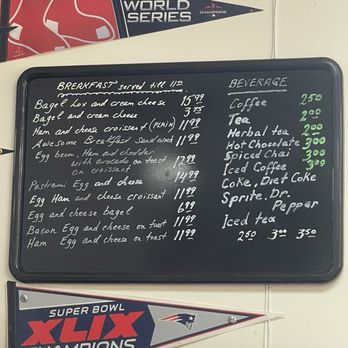 WORLD
SERIES
CHAMPIONS
BREAKFAST served till 11:00
Bagel Lox and cream cheese 15.99
Bagel and cream cheese 3.75
Ham and cheese croissant (PLAIN) 11.99
Awesome Breakfast sandwich 11.99
Egg bacon, Ham and cheddar
with avocado on toast
on croissant 12.99
Pastrami Egg and cheese 14.99
Egg Ham and cheese croissant 11.99
Egg and cheese bagel 6.99
Bacon Egg and cheese on toast 11.99
Ham Egg and cheese on toast 11.99
BEVERAGE
Coffee 2.50
Tea 2.00
Herbal tea 2.00
Hot Chocolate 3.00
Spiced Chai 3.00
Iced Coffee 3.00
Coke, Diet Coke
Sprite. Dr.
Pepper
Iced tea
2.50 3.00 3.50
SUPER BOWL
XLIX
CHAMPIONS